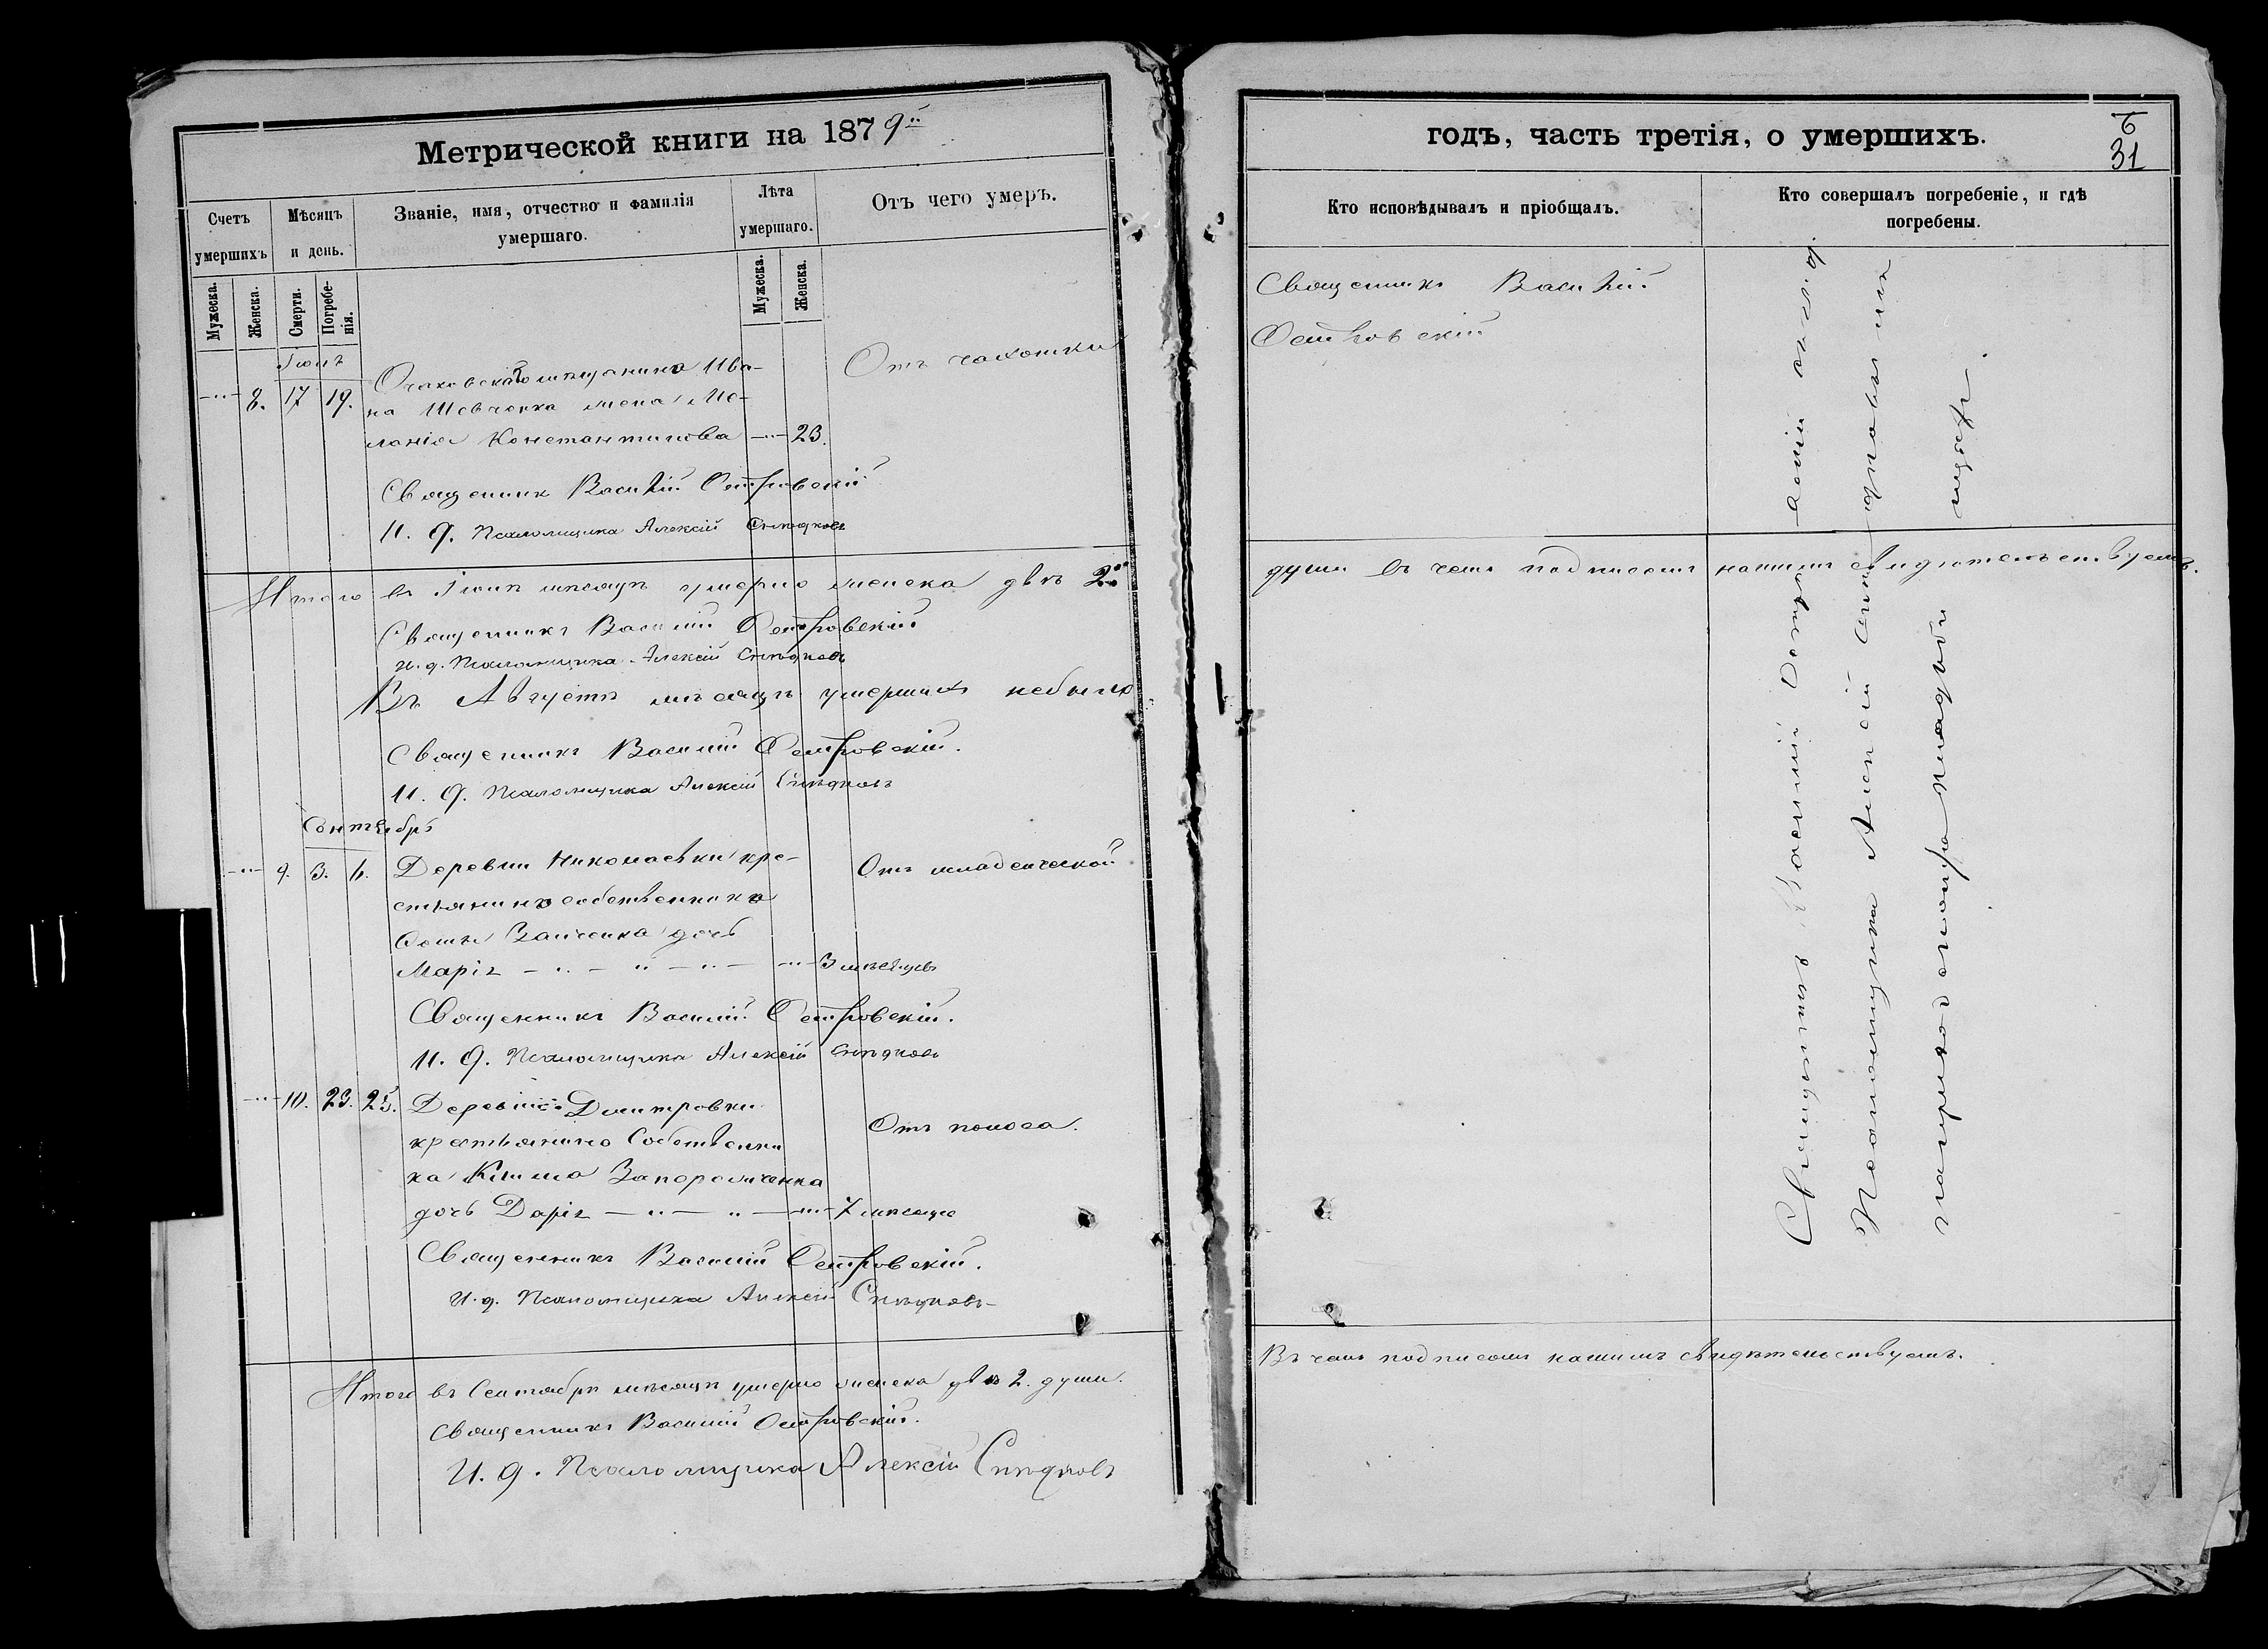 Метрической книги на 1879й
Счетъ умершихъ
Мѣсяцъ и день.
Званіе, имя, отчество и фамилія умершаго.
Лѣта умершаго.
Отъ чего умеръ.
Мужеска.
Женска.
Смерти.
Погребенія.
Мужеска.
Женска.
Іюль
8. 17 19. Очаковскаго мѣщанина Ива-
на Шевченка жена Ме-
ланія Константинова 23.
Отъ чахотки
Священникъ Василій Островскій
И. д. Псаломщика Алексій
Итого въ Іюлѣ мѣсяцѣ умерло женска двѣ 2
Священникъ Василій Островскій
И. д. Псаломщика Алексій
Въ Августѣ мѣсяцѣ умершихъ небыло
Священникъ Василій Островскій.
И. д. Псаломщика Алексій
Сентябрь
9. 3. Деревни Николаевки кре-
стьянина собственника
дочь
Марія 3 мѣсяцевъ
Отъ младенческой
Священникъ Василій Островскій.
И. д. Псаломщика Алексій
10. 23. 25. Деревни Дмитровки
крестьянина Собственни
ка Клима Запорожченка
дочь Дарія 7 мѣсяцъ
Отъ поноса.
Священникъ Василій Островскій.
И. д. Псаломщика Алексій
Итого въ Сентябрѣ мѣсяцѣ умерло женска двѣ 2. души.
Священникъ Василій Островскій.
И. д. Псаломщика Алексій
годъ, часть третія, о умершихъ.
6
31
Кто исповѣдывалъ и пріобщалъ.
Кто совершалъ погребеніе, и гдѣ погребены.
Священникъ Василій
Островскій
души въ чемъ подписомъ нашимъ свидѣтельствуемъ.
Священникъ Василій
Псаломщика Алексій
на приходскомъ кладби
щѣ.
Въ чемъ подписомъ нашимъ свидѣтельствуемъ.